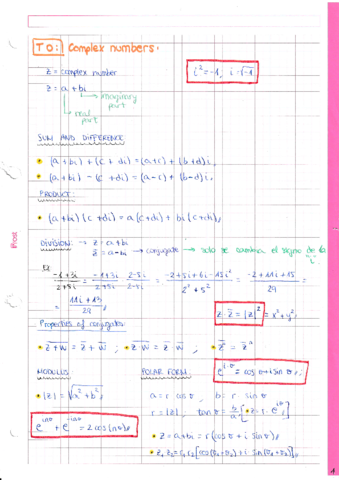 T0: Complex numbers.
z = complex number
i² = -1, i = √-1
z = a + bi
imaginary part
real part
SUM AND DIFFERENCE
• (a + bi) + (c + di) = (a+c) + (b+d)i
• (a + bi) - (c + di) = (a-c) + (b-d)i
PRODUCT:
• (a+bi)(c+di) = a(c+di) + bi(c+di)
DIVISION: → z = a+bi
z̄ = a-bi → conjugate → solo se cambia el signo de la i
-1+3i / 2+5i = -1+3i / 2+5i · 2-5i / 2-5i = -2+5i+6i-15i² / 2²+5² = -2+11i+15 / 29 =
= 11i+13 / 29
z·z̄ = |z|² = x²+y²
Properties of conjugates:
• z+w = z̄ + w̄ ; • z w = z̄ w̄ ; • z̄ⁿ = z̄ⁿ
MODULUS:
POLAR FORM:
e^(i·θ) = cos θ + i sin θ
• |z| = √(a² + b²)
a = r cos θ, b = r · sin θ
r = |z|, tan θ = b/a [• z = r · e^(iθ)]
e^(inθ) + e^(inθ) = 2cos(nθ)
• z = a+bi = r(cos θ + i sin θ)
• z₁ z₂ = r₁ r₂ [cos(θ₁+θ₂) + i sin(θ₁+θ₂)]
Prost
1